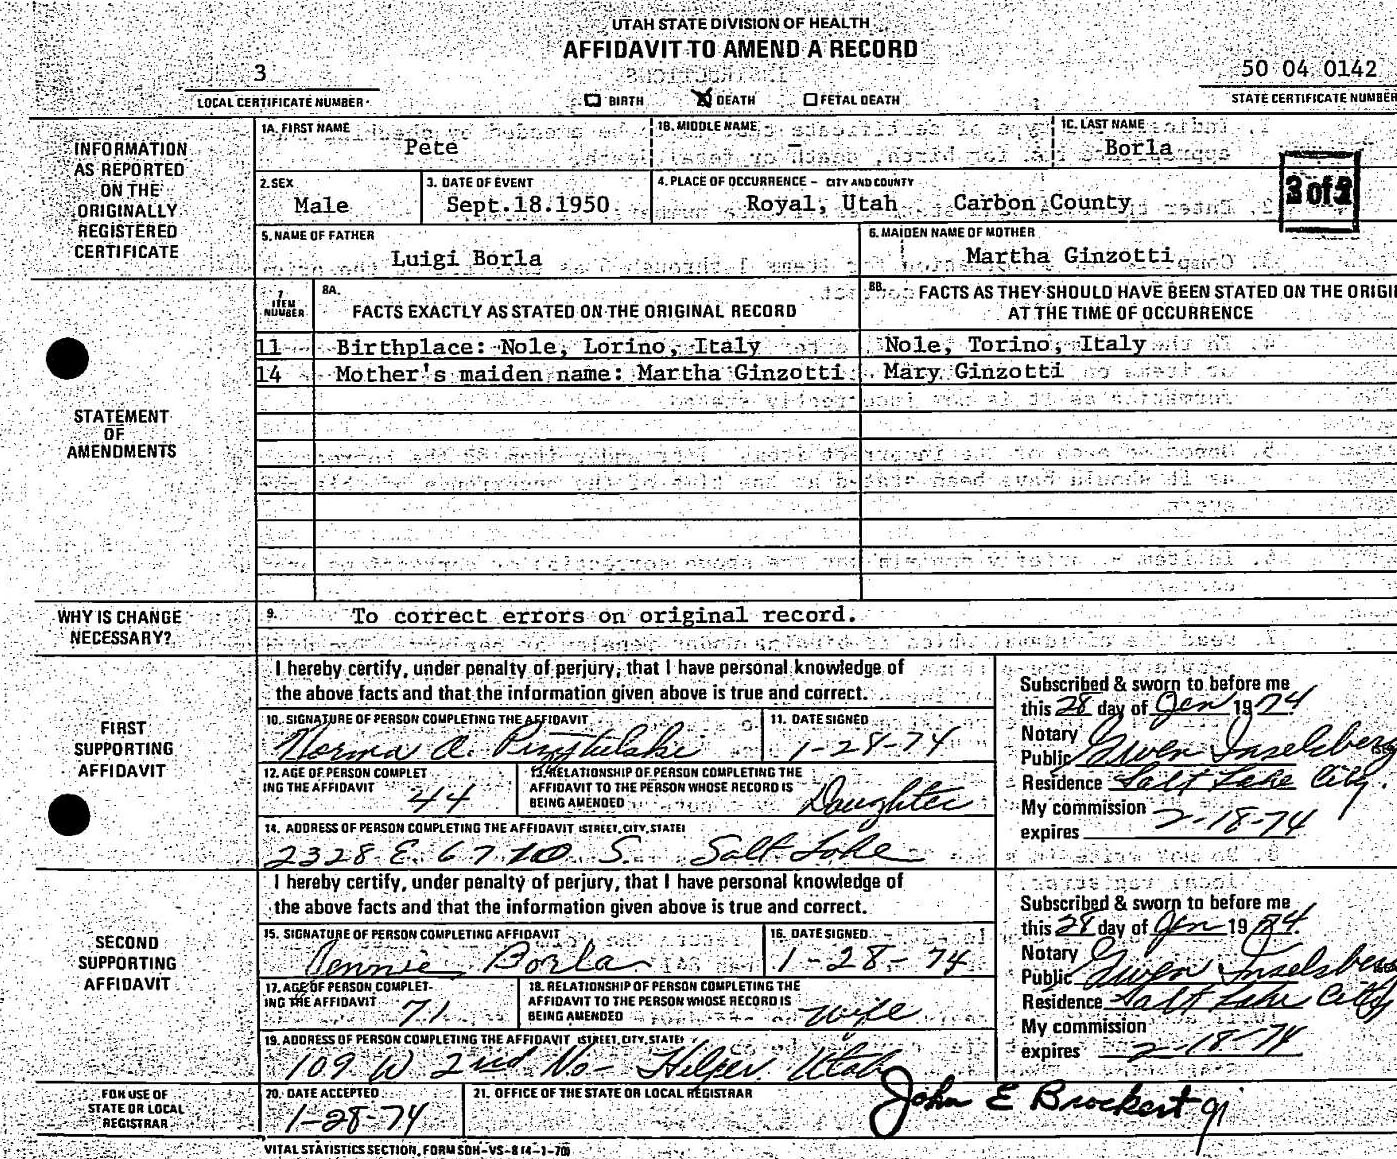 UTAH STATE DIVISION OF HEALTH
AFFIDAVIT TO AMEND A RECORD
3
LOCAL CERTIFICATE NUMBER
BIRTH X DEATH FETAL DEATH
50 04 0142
STATE CERTIFICATE NUMBER
INFORMATION
AS REPORTED
ON THE
ORIGINALLY
REGISTERED
CERTIFICATE
1A. FIRST NAME
Pete
1B. MIDDLE NAME
–
1C. LAST NAME
Borla
2. SEX
Male
3. DATE OF EVENT
Sept.18.1950
4. PLACE OF OCCURRENCE – CITY AND COUNTY
Royal, Utah Carbon County
5. NAME OF FATHER
Luigi Borla
6. MAIDEN NAME OF MOTHER
Martha Ginzotti
STATEMENT
OF
AMENDMENTS
7
ITEM
NUMBER
8A.
FACTS EXACTLY AS STATED ON THE ORIGINAL RECORD
8B. FACTS AS THEY SHOULD HAVE BEEN STATED ON THE ORIGI
AT THE TIME OF OCCURRENCE
11 Birthplace: Nole, Lorino, Italy Nole, Torino, Italy
14 Mother's maiden name: Martha Ginzotti Mary Ginzotti
WHY IS CHANGE
NECESSARY?
9. To correct errors on original record.
FIRST
SUPPORTING
AFFIDAVIT
I hereby certify, under penalty of perjury, that I have personal knowledge of
the above facts and that the information given above is true and correct.
10. SIGNATURE OF PERSON COMPLETING THE AFFIDAVIT
Norma A.
11. DATE SIGNED
1-28-74
12. AGE OF PERSON COMPLET
ING THE AFFIDAVIT
44
13. RELATIONSHIP OF PERSON COMPLETING THE
AFFIDAVIT TO THE PERSON WHOSE RECORD IS
BEING AMENDED
Daughter
14. ADDRESS OF PERSON COMPLETING THE AFFIDAVIT (STREET, CITY, STATE)
2328 E. S. Salt Lake
Subscribed & sworn to before me
this 28 day of Jan 1974
Notary
Public Gwen Inselsberg
Residence Salt Lake City.
My commission
expires 2-18-74
SECOND
SUPPORTING
AFFIDAVIT
I hereby certify, under penalty of perjury, that I have personal knowledge of
the above facts and that the information given above is true and correct.
15. SIGNATURE OF PERSON COMPLETING AFFIDAVIT
Jennie Borla
16. DATE SIGNED
1-28-74
17. AGE OF PERSON COMPLET-
ING THE AFFIDAVIT
71
18. RELATIONSHIP OF PERSON COMPLETING THE
AFFIDAVIT TO THE PERSON WHOSE RECORD IS
BEING AMENDED
wife
19. ADDRESS OF PERSON COMPLETING THE AFFIDAVIT (STREET, CITY, STATE)
109 W 2nd No– Helper Utah
Subscribed & sworn to before me
this 28 day of Jan 1974
Notary
Public Gwen Inselsberg
Residence Salt Lake City
My commission
expires 2-18-74
FOR USE OF
STATE OR LOCAL
REGISTRAR
20. DATE ACCEPTED
1-28-74
21. OFFICE OF THE STATE OR LOCAL REGISTRAR
John E Brockert
VITAL STATISTICS SECTION, FORM SDH-VS-8 (4-1-70)